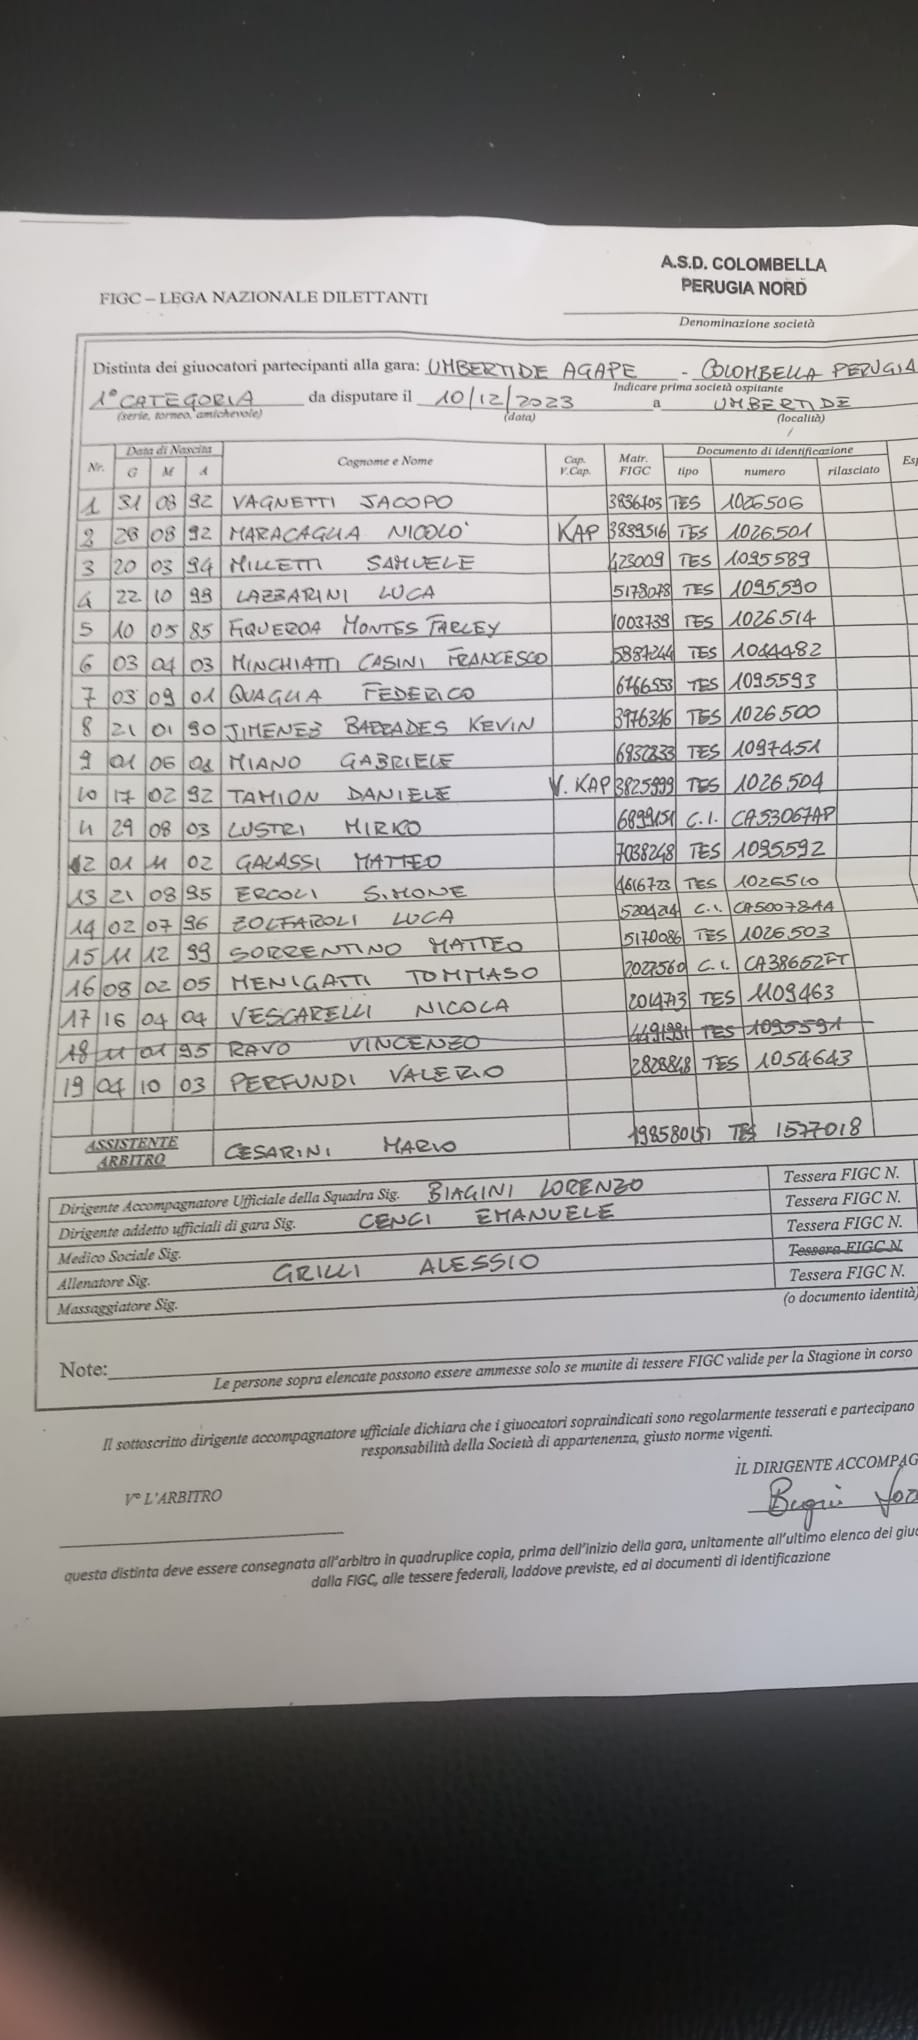 A.S.D. COLOMBELLA
PERUGIA NORD
FIGC – LEGA NAZIONALE DILETTANTI
Denominazione società
Distinta dei giuocatori partecipanti alla gara: UMBERTIDE AGAPE - COLOMBELLA PERUGIA
Indicare prima società ospitante
1° CATEGORIA da disputare il 10/12/2023 a UMBERTIDE
(serie, torneo, amichevole) (data) (località)
Nr. Data di Nascita Cognome e Nome Cap. V.Cap. Matr. FIGC Documento di identificazione
G M A tipo numero rilasciato
1 31 08 92 VAGNETTI JACOPO 3836703 TES 1026506
2 28 08 92 MARACAGLIA NICOLO' KAP 3839516 TES 1026501
3 20 03 94 MILLETTI SAMUELE 423009 TES 1095589
4 22 10 99 LAZZARINI LUCA 5178078 TES 1095590
5 10 05 85 FIQUEROA MONTES FARLEY 1003739 TES 1026514
6 03 04 03 MINCHIATTI CASINI FRANCESCO 5887244 TES 1044482
7 03 09 01 QUAGLIA FEDERICO 6766553 TES 1095593
8 21 01 90 JIMENEZ BARRADES KEVIN 3976346 TES 1026500
9 01 06 MIANO GABRIELE TES 1097451
10 17 02 92 TAMION DANIELE V. KAP 3825999 TES 1026504
11 29 08 03 LUSTRI MIRKO 6899151 C.I. CA53067AP
12 01 11 02 GALASSI MATTEO 7038248 TES 1095592
13 21 08 95 ERCOLI SIMONE 4616723 TES 1026510
14 02 07 96 ZOLFAROLI LUCA C.I. CA50078AA
15 11 12 99 SORRENTINO MATTEO 5170086 TES 1026503
16 08 02 05 MENIGATTI TOMMASO 2027560 C.I. CA38652FT
17 16 04 04 VESCARELLI NICOLA TES 1109463
18 11 01 95 RAVO VINCENZO 4491981 TES 1095591
19 04 10 03 PERFUNDI VALERIO 2828848 TES 1054643
ASSISTENTE
ARBITRO CESARINI MARIO TES 1577018
Dirigente Accompagnatore Ufficiale della Squadra Sig. BIAGINI LORENZO Tessera FIGC N.
Dirigente addetto ufficiali di gara Sig. CENCI EMANUELE Tessera FIGC N.
Medico Sociale Sig. Tessera FIGC N.
Allenatore Sig. GRILLI ALESSIO Tessera FIGC N.
Massaggiatore Sig. Tessera FIGC N.
(o documento identità)
Note:
Le persone sopra elencate possono essere ammesse solo se munite di tessere FIGC valide per la Stagione in corso
Il sottoscritto dirigente accompagnatore ufficiale dichiara che i giuocatori sopraindicati sono regolarmente tesserati e partecipano
responsabilità della Società di appartenenza, giusto norme vigenti.
IL DIRIGENTE ACCOMPAG
V° L'ARBITRO
questa distinta deve essere consegnata all'arbitro in quadruplice copia, prima dell'inizio della gara, unitamente all'ultimo elenco dei giuo
dalla FIGC, alle tessere federali, laddove previste, ed ai documenti di identificazione